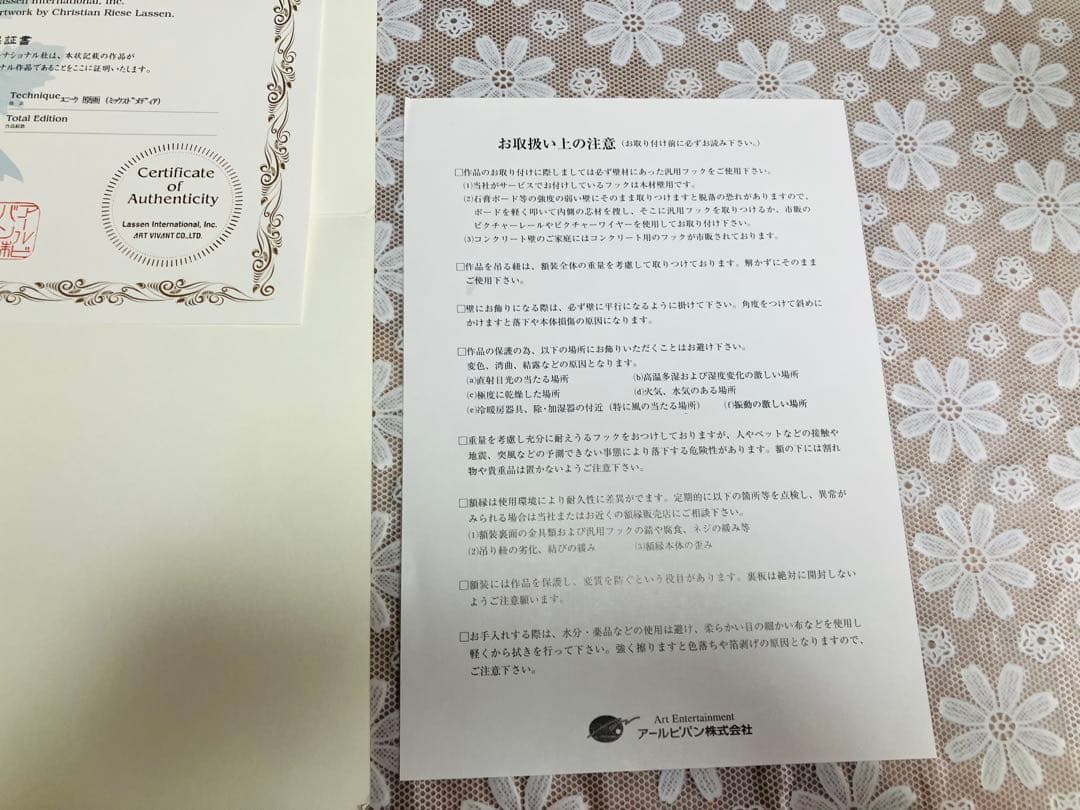 Lassen International, Inc.
artwork by Christian Riese Lassen.
証書
ナショナル社は、本状記載の作品が
ナル作品であることをここに証明いたします。
Technique ユニーク 原画 (ミックストﾞメディア)
技法
Total Edition
作品総数
Certificate
of
Authenticity
Lassen International, Inc.
ART VIVANT CO., LTD.
お取扱い上の注意（お取り付け前に必ずお読み下さい。）
□作品のお取り付けに際しましては必ず壁材にあった汎用フックをご使用下さい。
⑴当社がサービスでお付けしているフックは木材壁用です。
⑵石膏ボード等の強度の弱い壁にそのまま取りつけますと脱落の恐れがありますので、
ボードを軽く叩いて内側の芯材を捜し、そこに汎用フックを取りつけるか、市販の
ピクチャーレールやピクチャーワイヤーを使用してお取り付け下さい。
⑶コンクリート壁のご家庭にはコンクリート用のフックが市販されております。
□作品を吊る紐は、額装全体の重量を考慮して取りつけております。解かずにそのまま
ご使用下さい。
□壁にお飾りになる際は、必ず壁に平行になるように掛けて下さい。角度をつけて斜めに
かけますと落下や本体損傷の原因になります。
□作品の保護の為、以下の場所にお飾りいただくことはお避け下さい。
変色、湾曲、結露などの原因となります。
⒜直射日光の当たる場所 ⒝高温多湿および湿度変化の激しい場所
⒞極度に乾燥した場所 ⒟火気、水気のある場所
⒠冷暖房器具、除・加湿器の付近（特に風の当たる場所） ⒡振動の激しい場所
□重量を考慮し充分に耐えうるフックをおつけしておりますが、人やペットなどの接触や
地震、突風などの予測できない事態により落下する危険性があります。額の下には割れ
物や貴重品は置かないようご注意下さい。
□額縁は使用環境により耐久性に差異がでます。定期的に以下の箇所等を点検し、異常が
みられる場合は当社またはお近くの額縁販売店にご相談下さい。
⑴額装裏面の金具類および汎用フックの錆や腐食、ネジの緩み等
⑵吊り紐の劣化、結びの緩み ⑶額縁本体の歪み
□額装には作品を保護し、変質を防ぐという役目があります。裏板は絶対に開封しない
ようご注意願います。
□お手入れする際は、水分・薬品などの使用は避け、柔らかい目の細かい布などを使用し
軽くから拭きを行って下さい。強く擦りますと色落ちや箔剥げの原因となりますので、
ご注意下さい。
Art Entertainment
アールビバン株式会社